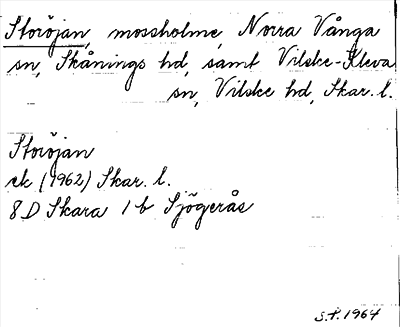 Storöjan, mossholme, Norra Vånga
sn, Skånings hd, samt Vilske-Kleva
sn, Vilske hd, Skar. l.
Storöjan
ek (1962) Skar. l.
8D Skara 1b Sjögerås
S.F. 1964